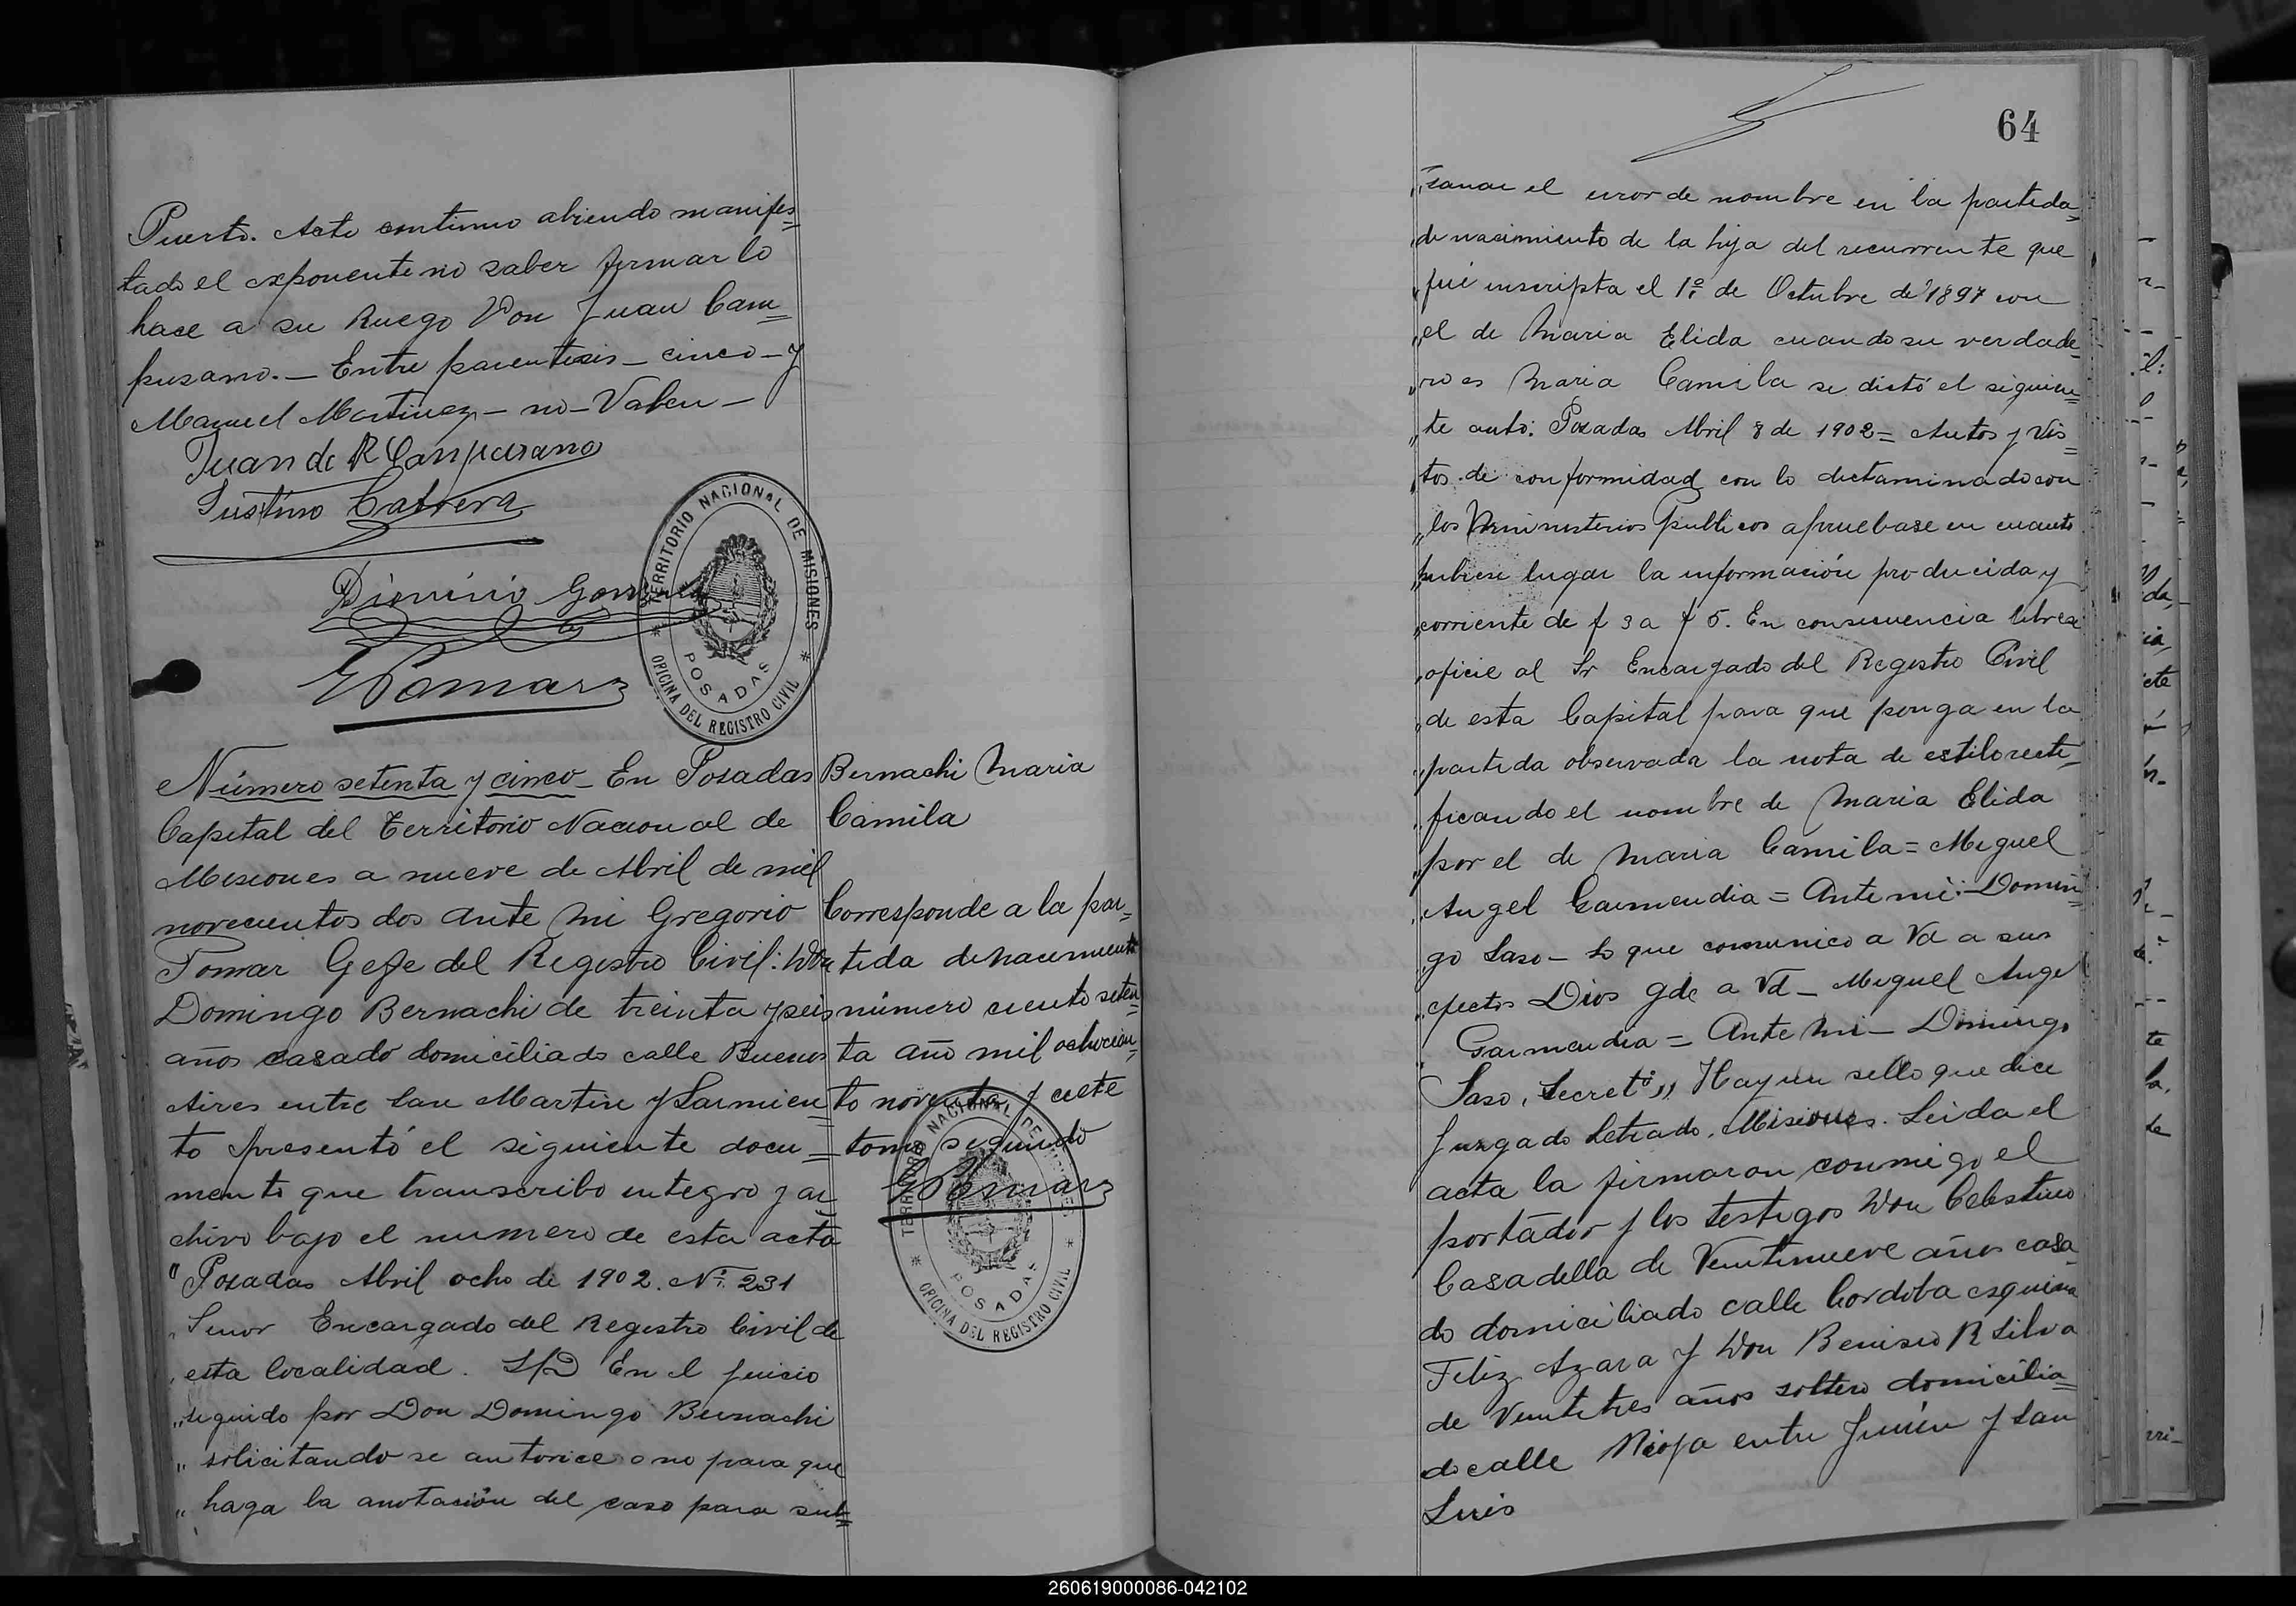 Puerto. Acto continuo abiendo manifes=
tado el exponente no saber firmar lo
hace a su Ruego Don Juan Cam=
pusano.— Entre parentesis — cinco — y
Manuel Martinez — no — Valen —
Juan de R Campusano
Justino Cabrera
Dionicio Gomez
GPomar
TERRITORIO NACIONAL DE MISIONES
POSADAS
* OFICINA DEL REGISTRO CIVIL *
Número setenta y cinco — En Posadas
Capital del Territorio Nacional de
Misiones a nueve de Abril de mil
novecientos dos ante mi Gregorio
Pomar Gefe del Registro Civil: Don
Domingo Bernachi de treinta y seis
años casado domiciliado calle Buenos
Aires entre San Martin y Sarmien=
to presentó el siguiente docu=
mento que transcribo integro y ar
chivo bajo el numero de esta acta
"Posadas Abril ocho de 1902. Nº 231
" Señor Encargado del Registro Civil de
" esta localidad. S/D En el juicio
" seguido por Don Domingo Bernachi
" solicitando se autorice o no para que
" haga la anotación del caso para sub=
Bernachi Maria
Camila
Corresponde a la par=
tida de nacimiento
número ciento seten=
ta año mil ochocien=
to noventa y ciete
tomo segundo
GPomar
TERRITORIO NACIONAL DE MISIONES
POSADAS
* OFICINA DEL REGISTRO CIVIL *
64
"sanar el error de nombre en la partida
"de nacimiento de la hija del recurrente que
"fué inscripta el 1º de Octubre de 1897 con
"el de Maria Elida cuando su verdade=
"ro es Maria Camila se dictó el siguien=
"te auto: Posadas Abril 8 de 1902 = Autos y Vis=
"tos de conformidad con lo dictaminado con
"los Ministerios Publicos apruebase en cuanto
"hubiere lugar la información producida y
"corriente de f 3 a f 5. En consecuencia librese
"oficie al Sr Encargado del Registro Civil
"de esta Capital para que ponga en la
"partida observada la nota de estilo recti=
"ficando el nombre de Maria Elida
"por el de Maria Camila = Miguel
"Angel Garmendia = Ante mi: — Domin
"go Saso — Lo que comunico a Vd a sus
"efectos Dios gde a Vd — Miguel Angel
" Garmendia = Ante Mi — Domingo
Saso, Secretº" Hay un sello que dice
Juzgado Letrado. Misiones. Leida el
acta la firmaron conmigo el
portador y los testigos Don Celestino
Casadella de Veintinueve años casa=
do domiciliado calle Cordoba esquina
Feliz Azara y Don Benisio R Silva
de Veintetres años soltero domicilia=
do calle Rioja entre Junin y San
Luis
260619000086-042102